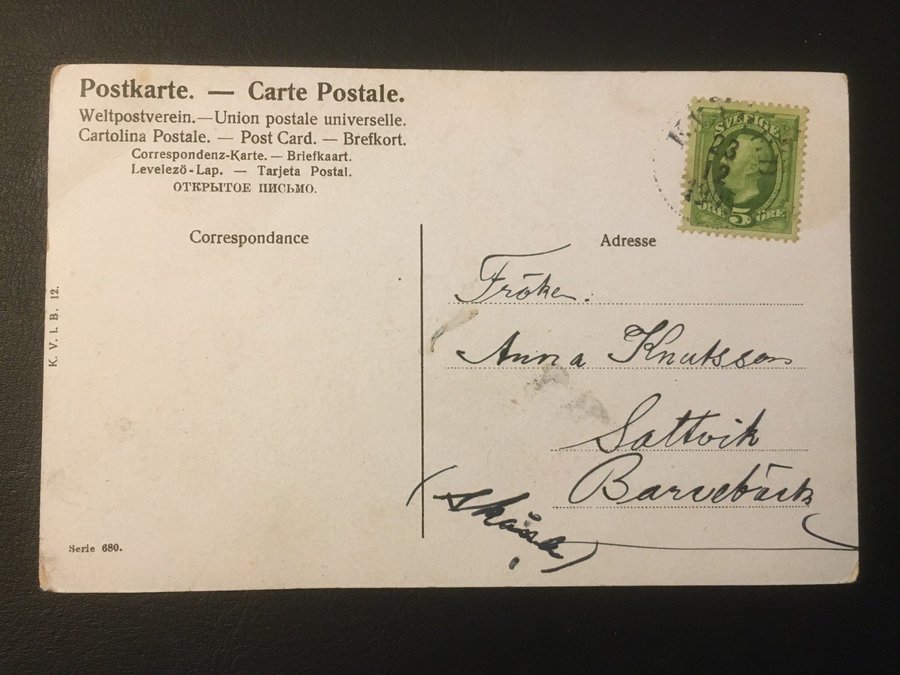 Postkarte. — Carte Postale.
Weltpostverein. — Union postale universelle.
Cartolina Postale. — Post Card. — Brefkort.
Correspondenz-Karte. — Briefkaart.
Levelező-Lap. — Tarjeta Postal.
ОТКРЫТОЕ ПИСЬМО.
SVERIGE
ÖRE 5 ÖRE
Correspondance
Adresse
Fröken:
Anna Knutsson
Saltvik
Barsebäck
(Skåne)
K. V. i. B. 12.
Serie 680.